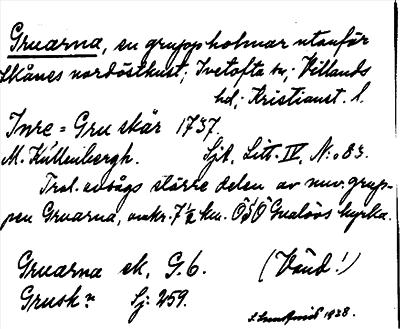 Gruarna, en grupp holmar utanför
Skånes nordöstkust; Ivetofta sn; Villands
hd; Kristianst. l.
Inre = Gru skär 1737.
M. Kullenbergh. Sjk, Litt. IV, N:o 83.
Trol. avsågs större delen av nuv. grup-
pen Gruarna, omkr. 7½ km. ÖSÖ Gualövs kyrka.
Gruarna ek, G. 6. (Vänd!)
Grusk:r Sj: 259.
1928.